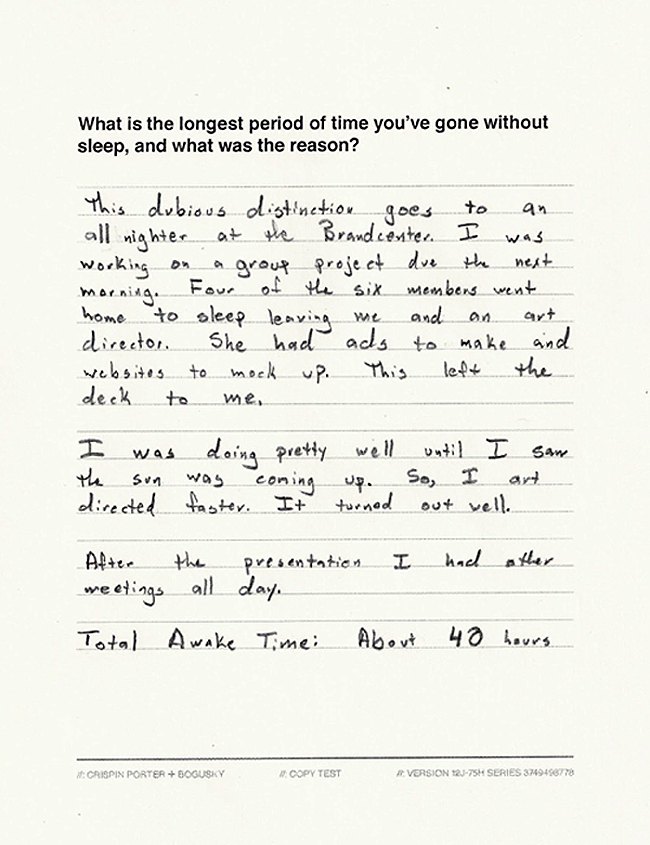 What is the longest period of time you've gone without
sleep, and what was the reason?
This dubious distinction goes to an
all nighter at the Brandcenter. I was
working on a group project due the next
morning. Four of the six members went
home to sleep leaving me and an art
director. She had ads to make and
websites to mock up. This left the
deck to me.
I was doing pretty well until I saw
the sun was coming up. So, I art
directed faster. It turned out well.
After the presentation I had other
meetings all day.
Total Awake Time: About 40 hours
//: CRISPIN PORTER + BOGUSKY //: COPY TEST //: VERSION 12J-75H SERIES 3749498778